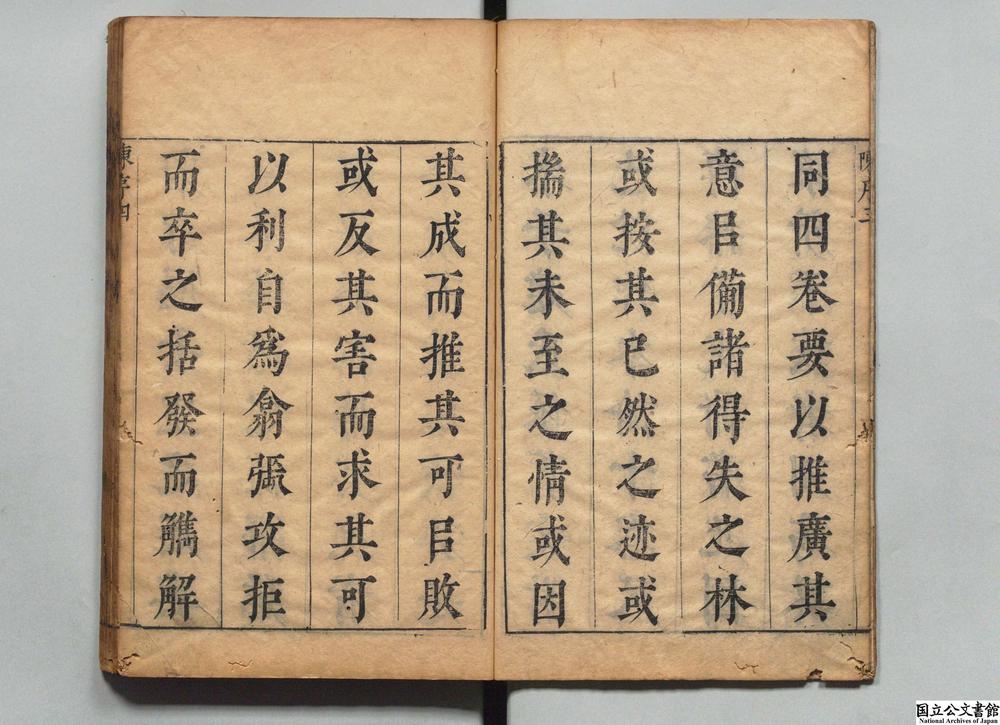 同四卷要以推廣其
意㠯備諸得失之林
或按其已然之迹或
揣其未至之情或因
其成而推其可㠯敗
或反其害而求其可
以利自爲翕張攻拒
而卒之括發而觿解
國立公文書館
National Archives of Japan